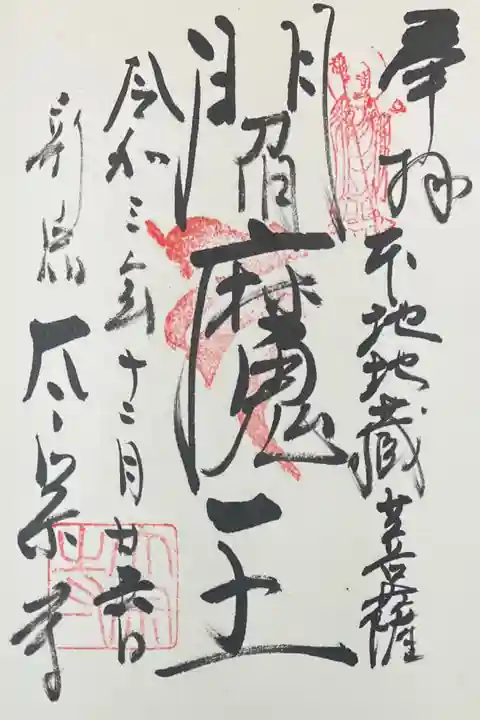 奉拝
本地地蔵菩薩
閻魔王
令和三年十二月廿六日
新宿 太宗寺